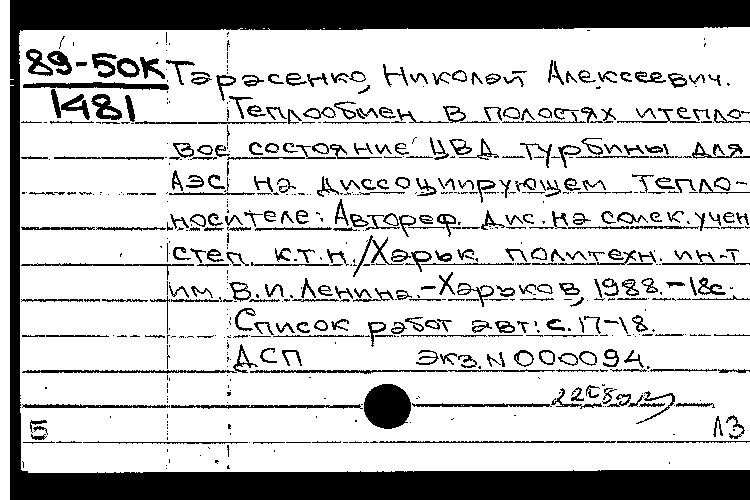 89-50К
1481
Тарасенко, Николай Алексеевич.
Теплообмен в полостях итепло-
вое состояние ЦВД турбины для
АЭС на диссоциирующем тепло-
носителе: Автореф. дис. на соиск. учен
степ. к.т.н./Харьк. политехн. ин-т
им. В.И. Ленина.-Харьков, 1988.-18с.
Список работ авт: с. 17-18.
ДСП экз. N 000094.
Б